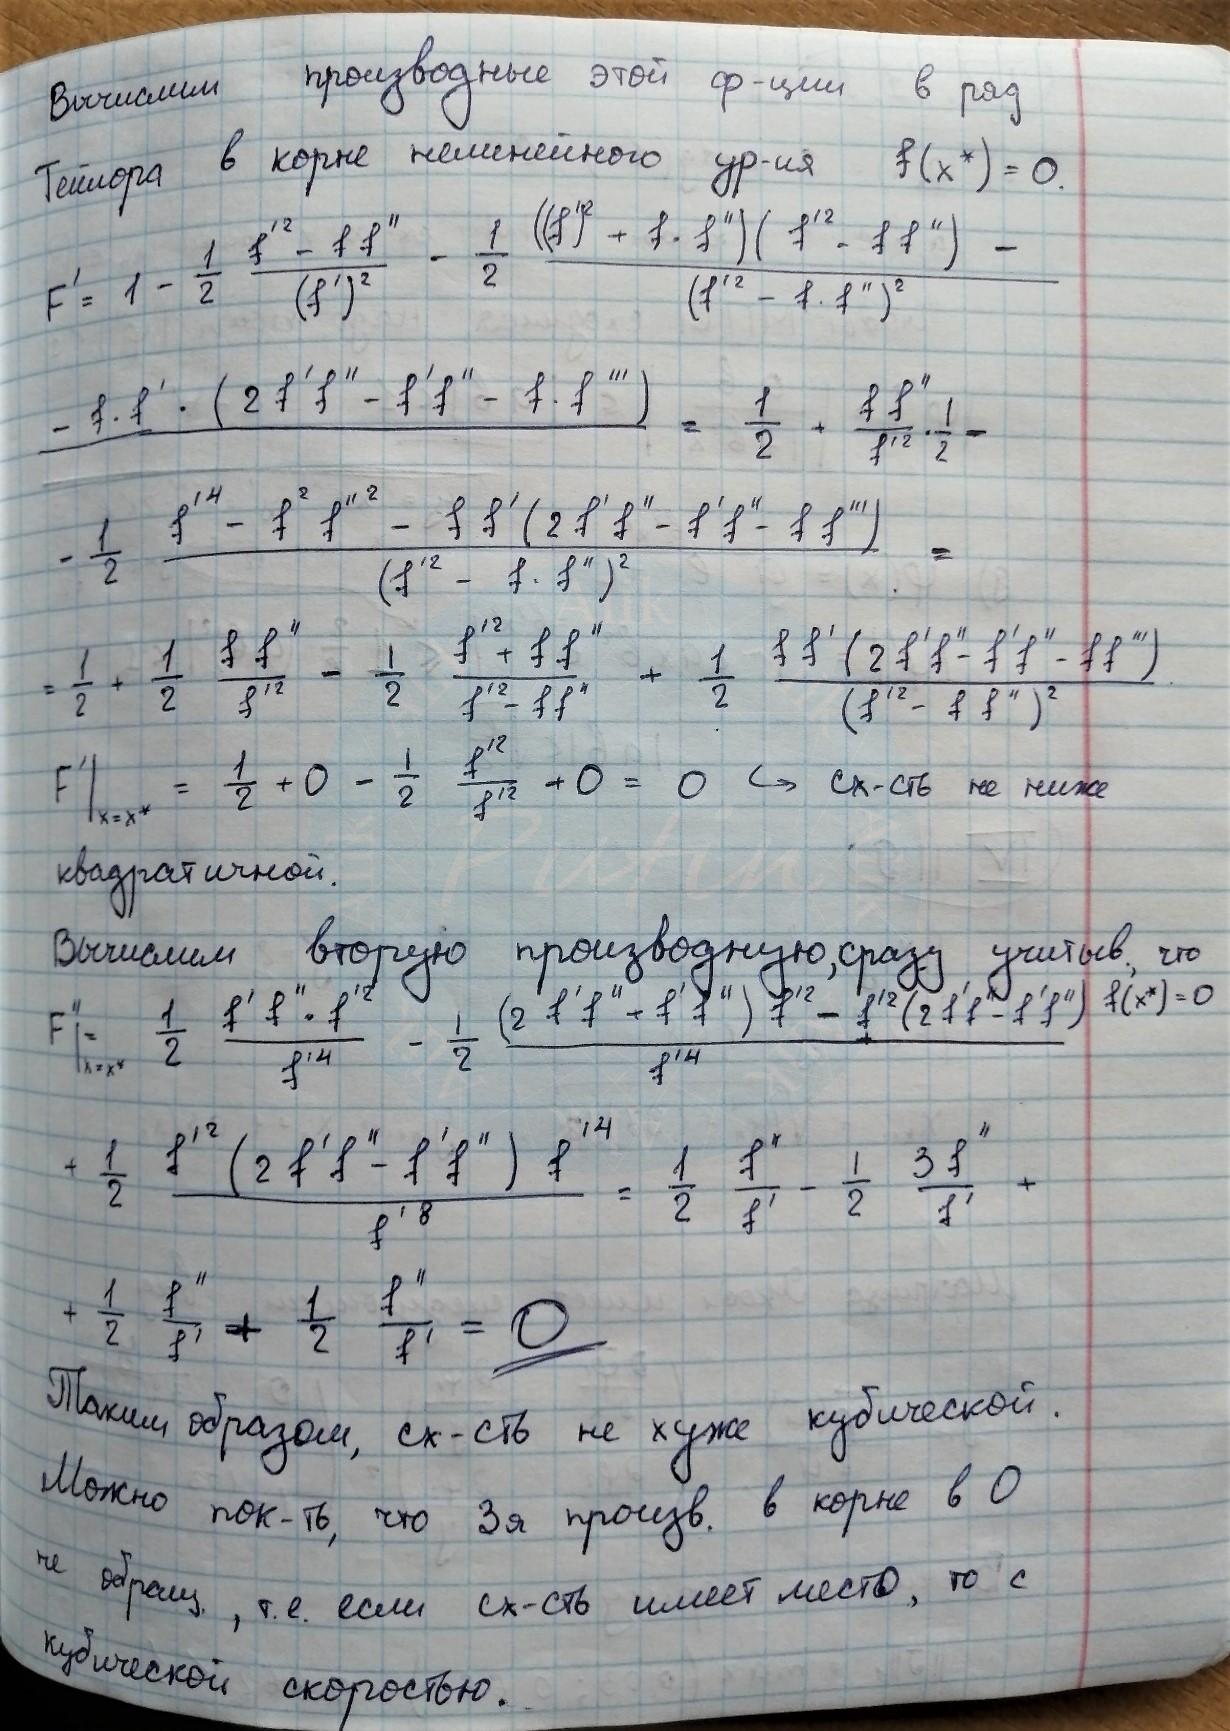 Вычислим производные этой ф-ции в ряд
Тейлора в корне нелинейного ур-ия f(x*) = 0.
F' = 1 - 1/2 (f'² - f f'')/(f')² - 1/2 ((f')² + f · f'')(f'² - f f'') -/(f'² - f · f'')²
- f · f' · (2 f' f'' - f' f'' - f · f''') = 1/2 + f f''/f'² · 1/2 -
- 1/2 (f'⁴ - f² f''² - f f' (2 f' f'' - f' f'' - f f'''))/(f'² - f · f'')² =
= 1/2 + 1/2 f f''/f'² - 1/2 (f'² + f f'')/(f'² - f f'') + 1/2 f f' (2 f' f'' - f' f'' - f f''')/(f'² - f f'')².
F'|x=x* = 1/2 + 0 - 1/2 f'²/f'² + 0 = 0 ↪ сх-сть не ниже
квадратичной.
Вычислим вторую производную, сразу учитыв., что
f(x*) = 0
F''|x=x* = 1/2 f' f'' · f'²/f'⁴ - 1/2 ((2 f' f'' + f' f'') f'² - f'² (2 f' f'' - f' f''))/f'⁴
+ 1/2 f'² (2 f' f'' - f' f'') f'⁴/f'⁸ = 1/2 f''/f' - 1/2 3f''/f' +
+ 1/2 f''/f' + 1/2 f''/f' = 0
Таким образом, сх-сть не хуже кубической.
Можно пок-ть, что 3я произв. в корне в 0
не обращ., т.е. если сх-сть имеет место, то с
кубической скоростью.